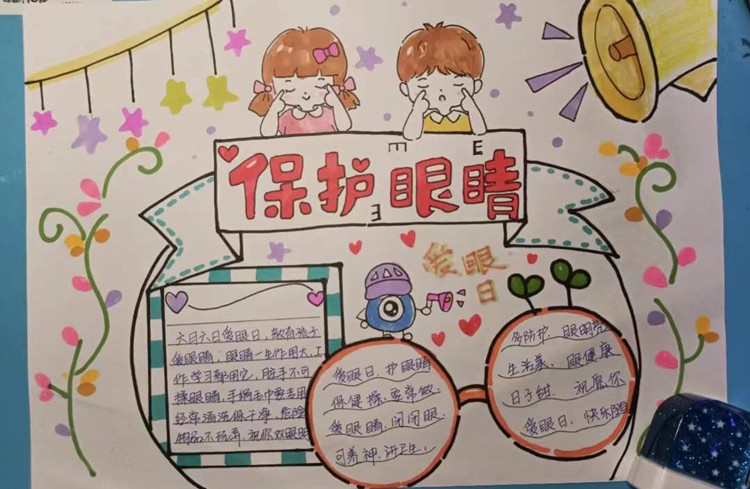 E
E
保护眼睛
E
爱眼
日
六月六日爱眼日，教育孩子
爱眼睛，眼睛一生作用大，工
作学习都用它，脏手不可
揉眼睛，手绢毛巾要专用
经常清洗保干净，危险
物品不玩弄，祝你双眼
爱眼日，护眼睛
保健操，要常做
爱眼睛，闭闭眼
可养神，讲卫生，
多防护，眼明亮
生活美，眼健康
日子甜，祝愿你
爱眼日，快乐